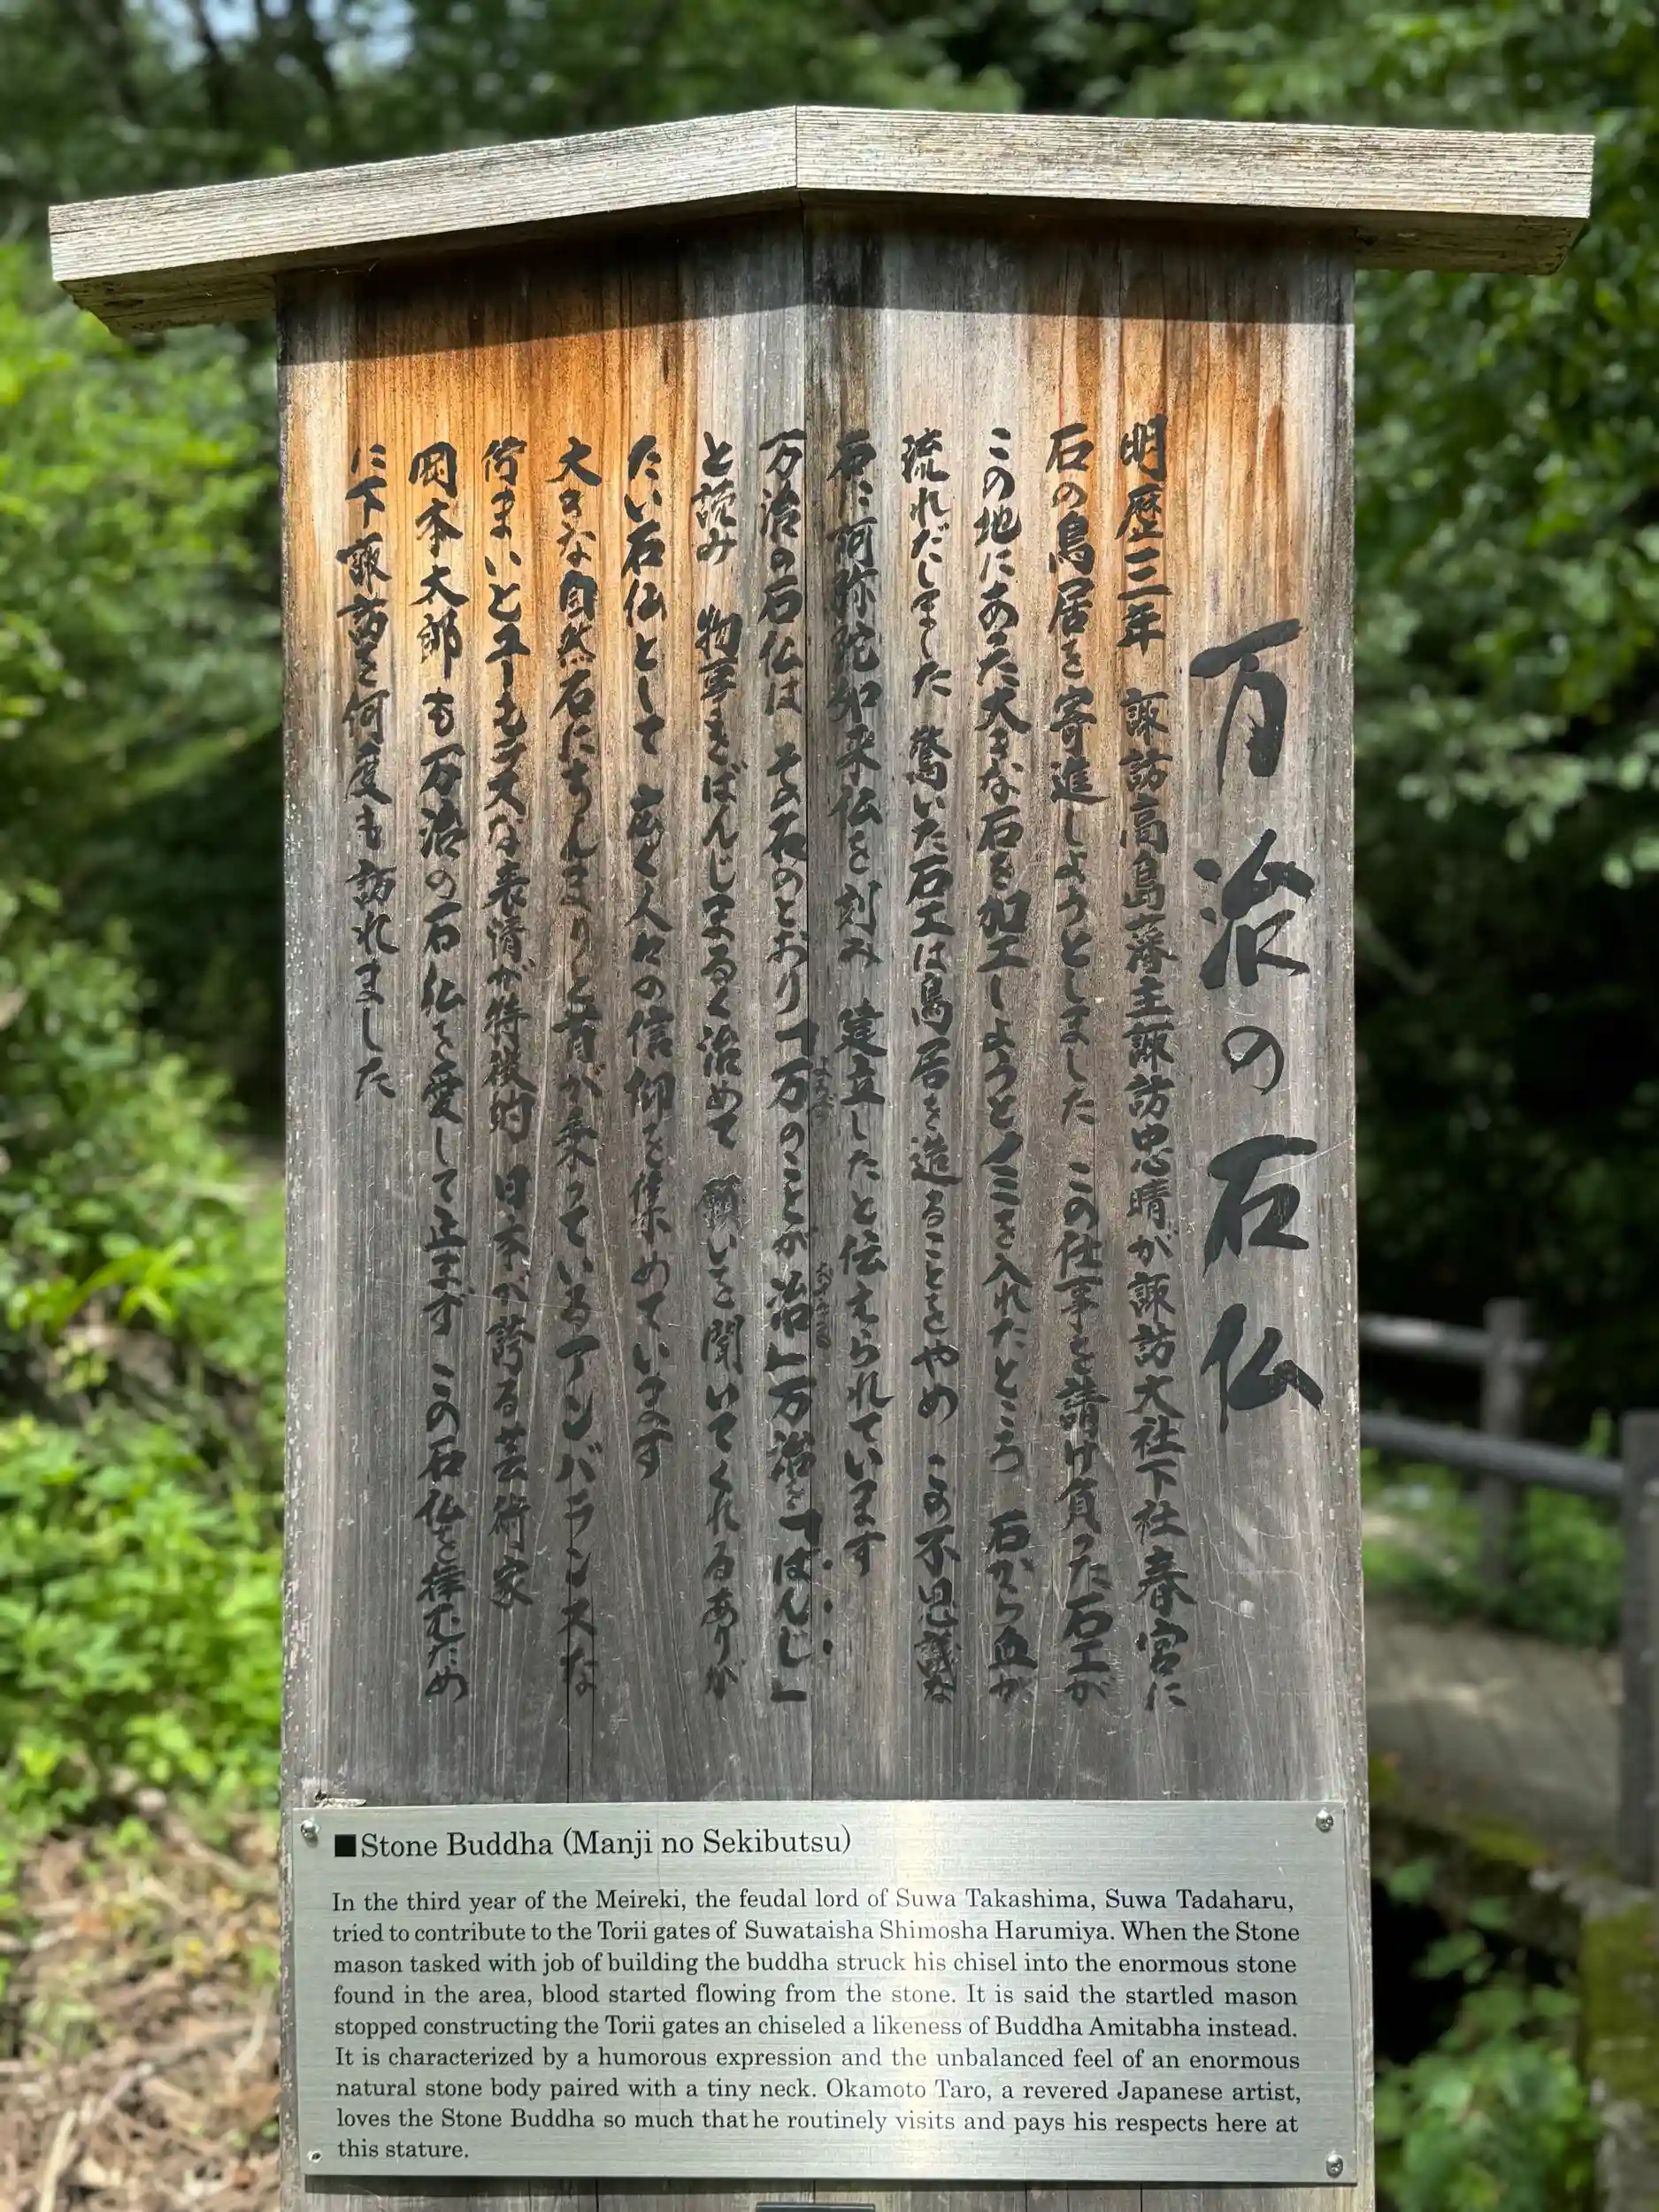 万治の石仏
明歴三年 諏訪高島藩主諏訪忠晴が諏訪大社下社春宮に
石の鳥居を寄進しようとしました この仕事を請け負った石工が
この地にあった大きな石を加工しようとノミを入れたところ 石から血が
流れだしました 驚いた石工は鳥居を造ることをやめ この不思議な
石に阿弥陀如来仏を刻み 建立したと伝えられています
万治の石仏は その名のとおり「万のことが治」万治を「ばんじ」
よろず
おさまる
と読み 物事をばんじまるく治めて 願いを聞いてくれるありが
たい石仏として 広く人々の信仰を集めています
大きな自然石にちんまりと首が乗っているアンバランスな
佇まいとユーモラスな表情が特徴的 日本が誇る芸術家
岡本太郎も万治の石仏を愛して止まず この石仏を拝むため
に下諏訪を何度も訪れました
■Stone Buddha (Manji no Sekibutsu)
In the third year of the Meireki, the feudal lord of Suwa Takashima, Suwa Tadaharu,
tried to contribute to the Torii gates of Suwataisha Shimosha Harumiya. When the Stone
mason tasked with job of building the buddha struck his chisel into the enormous stone
found in the area, blood started flowing from the stone. It is said the startled mason
stopped constructing the Torii gates an chiseled a likeness of Buddha Amitabha instead.
It is characterized by a humorous expression and the unbalanced feel of an enormous
natural stone body paired with a tiny neck. Okamoto Taro, a revered Japanese artist,
loves the Stone Buddha so much that he routinely visits and pays his respects here at
this stature.